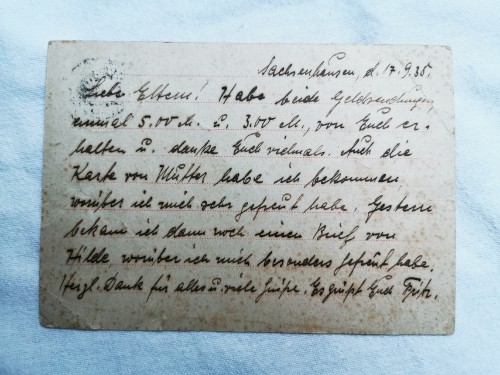 Sachsenhausen, d. 17.9.35.
Liebe Eltern! Habe beide Geldsendungen,
einmal 5.00 M. u. 3.00 M., von Euch er-
halten u. danke Euch vielmals. Auch die
Karte von Mutter habe ich bekommen,
worüber ich mich sehr gefreut habe. Gestern
bekam ich dann noch einen Brief von
Hilde, worüber ich mich besonders gefreut habe.
Herzl. Dank für alles u. viele Grüße. Es grüßt Euch Fritz.